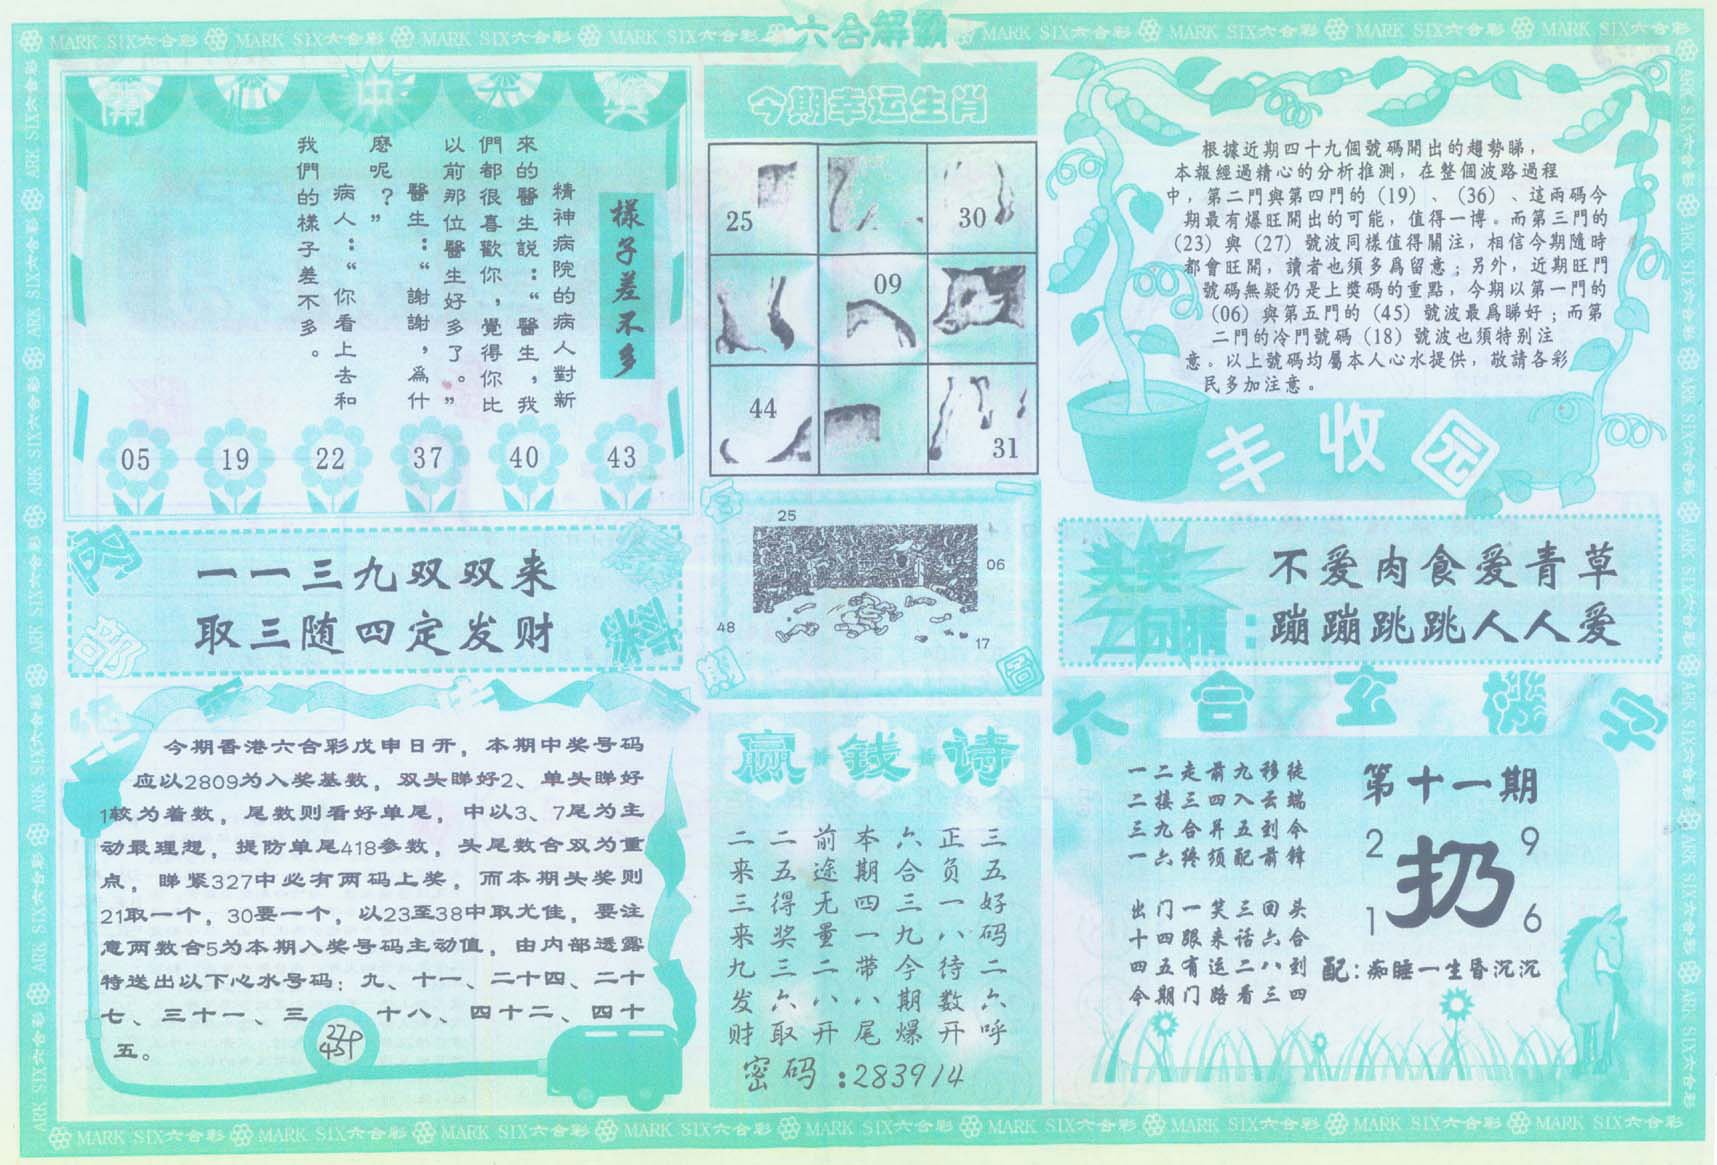 MARK SIX六合彩 MARK SIX六合彩 MARK SIX六合彩 MARK SIX六合彩
六合解霸
MARK SIX六合彩 MARK SIX六合彩 MARK SIX六合彩 MARK SIX六合彩
開心中大獎
樣子差不多
精神病院的病人對新
來的醫生説：“醫生，我
們都很喜歡你，覺得你比
以前那位醫生好多了。”
醫生：“謝謝，爲什
麼呢？”
病人：“你看上去和
我們的樣子差不多。
05 19 22 37 40 43
今期幸运生肖
25
30
09
44
31
根據近期四十九個號碼開出的趨勢睇，
本報經過精心的分析推測，在整個波路過程
中，第二門與第四門的（19）、（36）、這兩碼今
期最有爆旺開出的可能，值得一博。而第三門的
（23）與（27）號波同樣值得關注，相信今期隨時
都會旺開，讀者也須多爲留意；另外，近期旺門
號碼無疑仍是上獎碼的重點，今期以第一門的
（06）與第五門的（45）號波最爲睇好；而第
二門的冷門號碼（18）號波也須特别注
意。以上號碼均屬本人心水提供，敬請各彩
民多加注意。
丰收园
内部
一一三九双双来
取三随四定发财
25
06
48
17
头奖
二句猜：
不爱肉食爱青草
蹦蹦跳跳人人爱
今期香港六合彩戊申日开，本期中奖号码
应以2809为入奖基数，双头睇好2、单头睇好
1较为着数，尾数则看好单尾，中以3、7尾为主
动最理想，提防单尾418参数，头尾数合双为重
点，睇紧327中必有两码上奖，而本期头奖则
21取一个，30要一个，以23至38中取尤佳，要注
意两数合5为本期入奖号码主动值，由内部透露
特送出以下心水号码：九、十一、二十四、二十
七、三十一、三十八、四十二、四十
五。
赢钱诗
三五好码二六呼
正负一八待数开
六合三九今期爆
本期四一带八尾
前途无量二八开
二五得奖三六取
二来三来九发财
密码：283914
六合玄機字
一二走前九移徒
二接三四入云端
三九合并五到今
一六终须配前锋
出门一笑三回头
十四跟来话六合
四五有运二八到
今期门路看三四
第十一期
2 9
扔
1 6
配：痴睡一生昏沉沉
MARK SIX六合彩 MARK SIX六合彩 MARK SIX六合彩 MARK SIX六合彩 MARK SIX六合彩 MARK SIX六合彩 MARK SIX六合彩 MARK SIX六合彩 MARK SIX六合彩